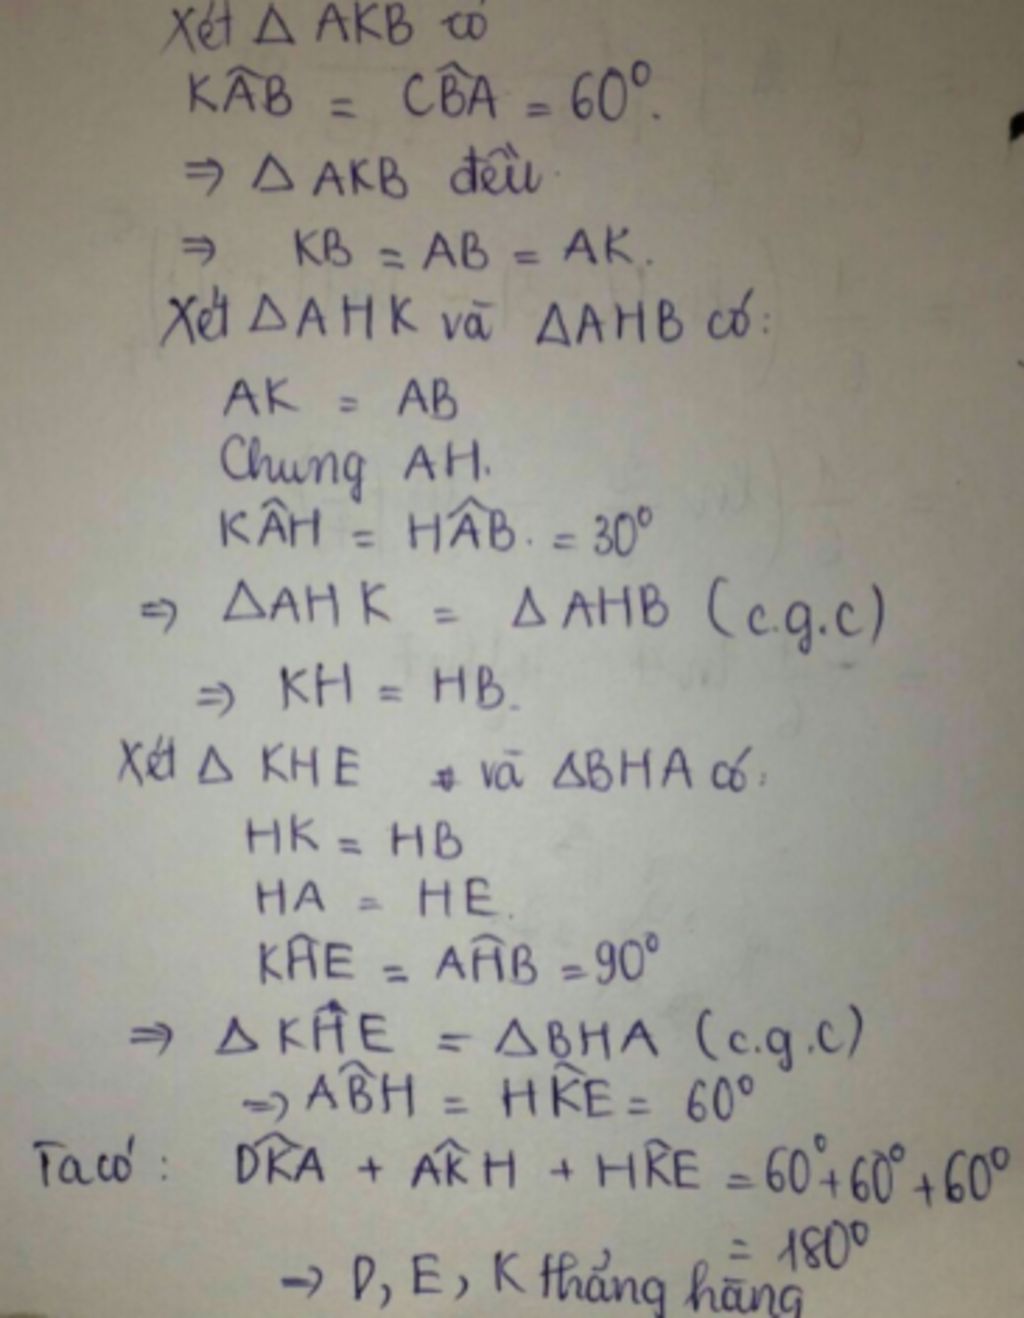 Xét Δ AKB có
KÂB = CB̂A = 60°.
⇒ Δ AKB đều
⇒ KB = AB = AK.
Xét ΔAHK và ΔAHB có:
AK = AB
Chung AH.
KÂH = HÂB. = 30°
⇒ ΔAHK = ΔAHB (c.g.c)
⇒ KH = HB.
Xét Δ KHE và ΔBHA có:
HK = HB
HA = HE.
KĤE = AĤB = 90°
⇒ Δ KĤE = ΔBHA (c.g.c)
⇒ AB̂H = HK̂E = 60°
Ta có: DK̂A + AK̂H + HK̂E = 60° + 60° + 60°
= 180°
→ D, E, K thẳng hàng